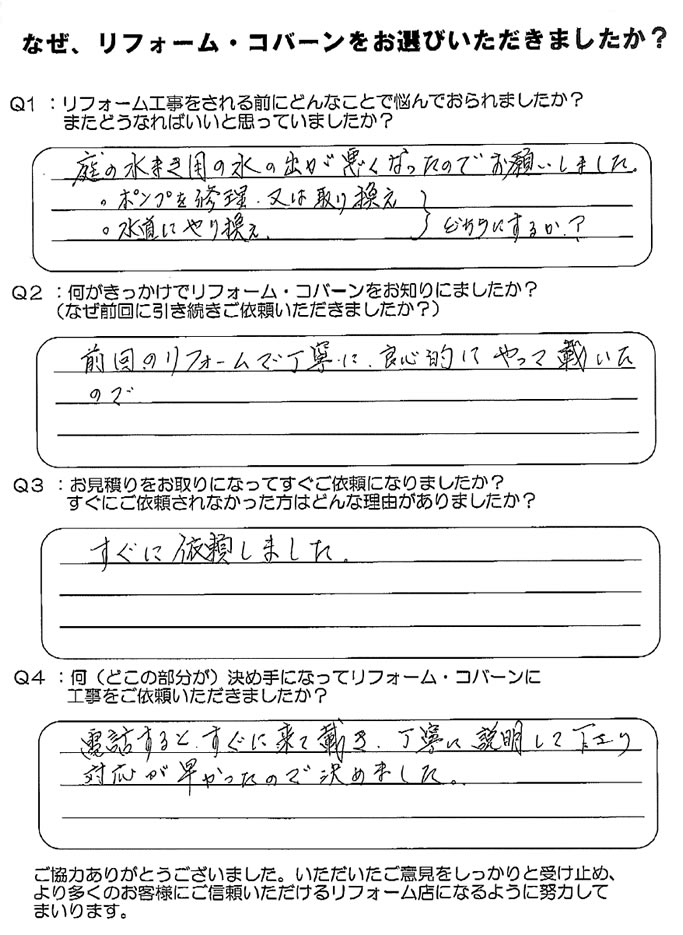 なぜ、リフォーム・コバーンをお選びいただきましたか？
Q1 ：リフォーム工事をされる前にどんなことで悩んでおられましたか？
またどうなればいいと思っていましたか？
庭の水まき用の水の出が悪くなったのでお願いしました。
。ポンプを修理、又は取り換え
。水道にやり換え、 } どちらにするか、？
Q2 ：何がきっかけでリフォーム・コバーンをお知りにましたか？
（なぜ前回に引き続きご依頼いただきましたか？）
前回のリフォームで丁寧に、良心的にやって戴いた
ので
Q3 ：お見積りをお取りになってすぐご依頼になりましたか？
すぐにご依頼されなかった方はどんな理由がありましたか？
すぐに依頼しました。
Q4 ：何（どこの部分が）決め手になってリフォーム・コバーンに
工事をご依頼いただきましたか？
電話すると、すぐに来て戴き、丁寧に説明して下さり
対応が早かったので決めました。
ご協力ありがとうございました。いただいたご意見をしっかりと受け止め、
より多くのお客様にご信頼いただけるリフォーム店になるように努力して
まいります。